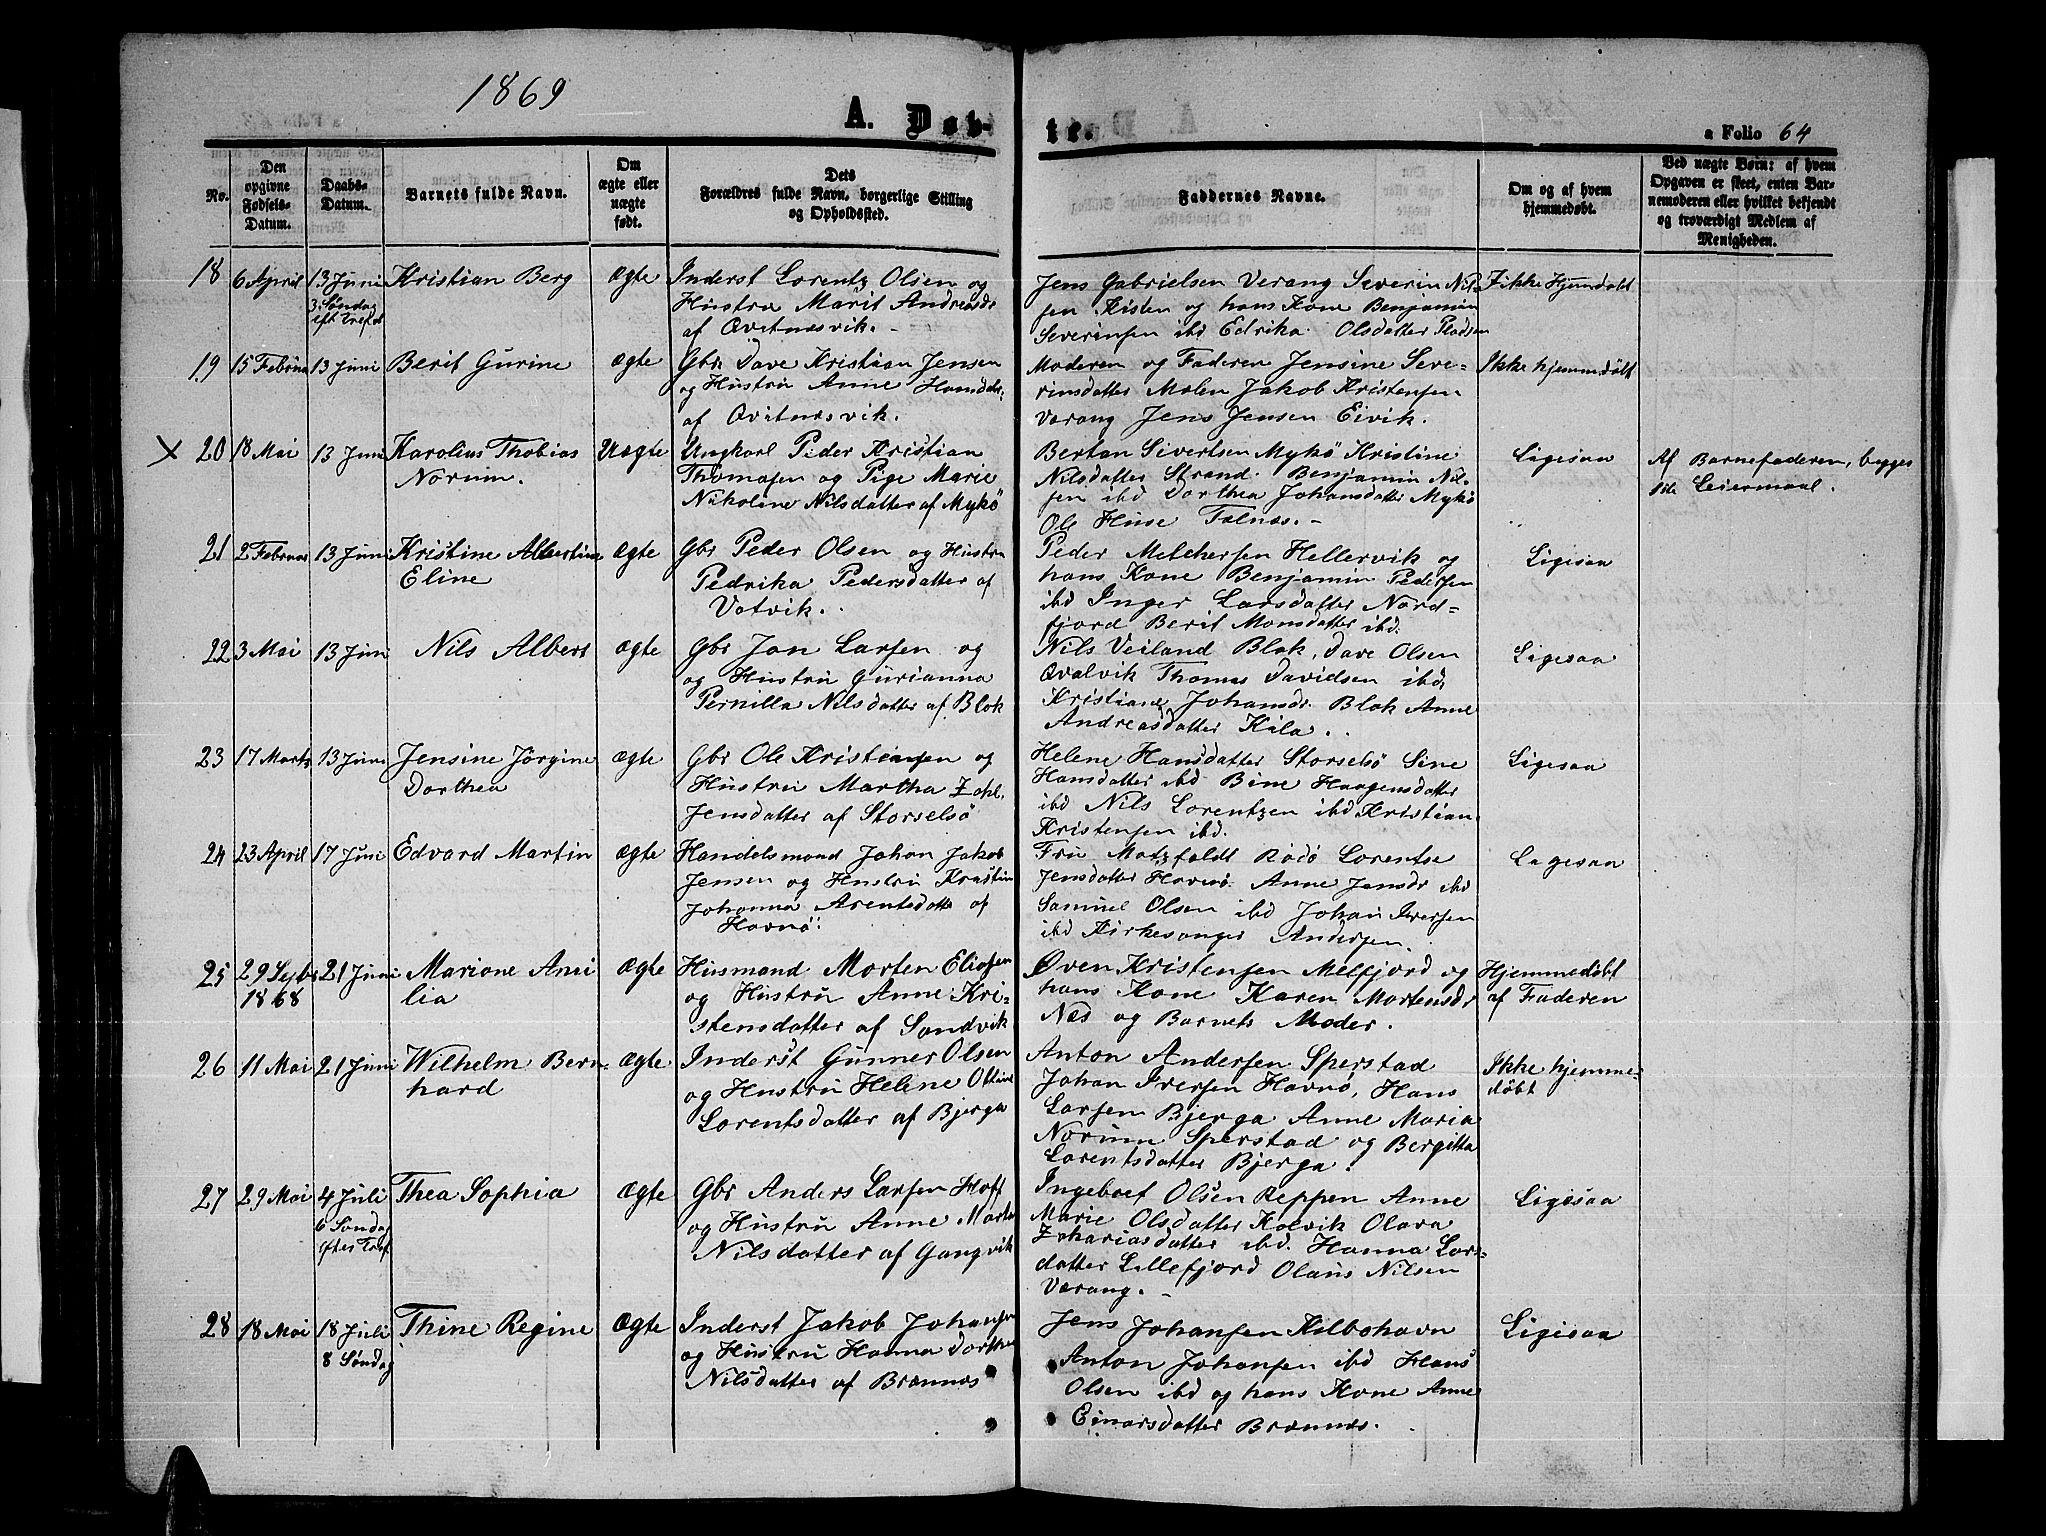 1869
A. Døb-
te.
a Folio 64
No.
Den opgivne Fødsels-Datum.
Daabs-Datum.
Barnets fulde Navn.
Om ægte eller nægte født.
Dets Forældres fulde Navn, borgerlige Stilling og Opholdssted.
Faddernes Navne.
Om og af hvem hjemmedøbt.
Ved nægte Børn: af hvem Opgaven er skeet, enten Barnemoderen eller hvilket bekjendt og troværdigt Medlem af Menigheden.
18 6 April 13 Juni 3. Søndag eft Tref Kristian Berg Ægte
Inderst Lorentz Olsen og
Hustru Marit Andreasdr
af Qvitnæsvik. -
Jens Gabrielsen Værang Severin Nil-
sen Kisten og hans Kone Benjamin
Severinsen ibd Edrika Olsdatter Pladsen
Ikke Hjemdøbt
19 15 Februar 13 Juni Berit Gurine Ægte
Gbr Dave Kristian Jensen
og Hustru Anne Hansdtr.
af Qvitnæsvik.
Moderen og Faderen Jensine Seve-
rinsdatter Molen Jakob Kristensen
Værang Jens Jensen Eivik.
Ikke hjemmdøbt
X 20 18 Mai 13 Juni Karolius Thobias
Norum.
Uægte
Ungkarl Peder Kristian
Thomasen og Pige Marie
Nikoline Nilsdatter af Mykø
Bertan Sivertsen Mykø Kristine
Nilsdatter Strand. Benjamin Nil-
sen ibd Dorthea Johansdatter Mykø
Ole Huse Tælnæs. -
Ligesaa
Af Barnefaderen, begges
1ste Leiermaal.
21 2 Februar 13 Juni Kristine Albertine
Eline
Ægte
Gbr Peder Olsen og Hustru
Pedrika Pedersdatter af
Votvik.
Peder Melchersen Hellervik og
hans Kone Benjamin Pedersen
ibd Inger Larsdatter Nord-
fjord Berit Monsdatter ibd.
Ligesaa
22 3 Mai 13 Juni Nils Albert Ægte
Gbr Jon Larsen og
og Hustru Gurianna
Pernilla Nilsdatter af Blok
Nils Veiland Blok, Dave Olsen
Qvalvik Thomas Davidsen ibd,
Kristiane Johansdr. Blok Anne
Andreasdatter Kila.
Ligesaa
23 17 Marts 13 Juni Jensine Jørgine
Dorthea
Ægte
Gbr Ole Kristiansen og
Hustru Martha
Jensdatter af Storselsø
Helene Hansdatter Storselsø Sine
Hansdatter ibd Bine Haagensdatter
ibd Nils Lorentzen ibd Kristian
Kristensen ibd.
Ligesaa
24 23 April 17 Juni Edvard Martin Ægte
Handelsmand Johan Jakob
Jensen og Hustru Kristin
Johanna Arentsdatte af
Havnø.
Fru Motzfeldt Rødø Lorentse
Jensdatter Havnø. Anne Jensdr ibd
Samuel Olsen ibd Johan Iversen
ibd Kirkesanger Andersen.
Ligesaa
25 29 Septbr 1868 21 Juni Marione Ami
lia
Ægte
Husmand Morten Eliasen
og Hustru Anne Kri-
stensdatter af Sandvik
Oven Kristensen Melfjord og
hans Kone Karen Mortensdr
Næs og Barnets Moder.
Hjemmedøbt
af Faderen
26 11 Mai 21 Juni Wilhelm Bern-
hard
Ægte
Inderst Gunner Olsen
og Hustru Helene Ottine
Lorentsdatter af Bjerga
Anton Andersen Sperstad
Johan Iversen Havnø, Hans
Larsen Bjerga Anne Maria
Norum Sperstad og Bergitta
Lorentsdatter Bjerga.
Ikke hjemme-
døbt
27 29 Mai 4 Juli 6 Søndag efter Tref. Thea Sophia Ægte
Gbr Anders Larsen Hoff
og Hustru Anne Marta
Nilsdatter af Gangvik
Ingeboet Olsen Reppen Anne
Marie Olsdatter Kolvik Olava
Zakariasdatter ibd. Hanna Lars-
datter Lillefjord Olaus Nilsen
Værang. -
Ligesaa
28 18 Mai 18 Juli 8 Søndag Thine Regine Ægte
Inderst Jakob Johansen
og Hustru Hanna Dorthea
Nilsdatter af Brænnæs
Jens Johansen Kilboghavn
Anton Johansen ibd Hans
Olsen ibd og hans Kone Anne
Einarsdatter Brænnæs.
Ligesaa